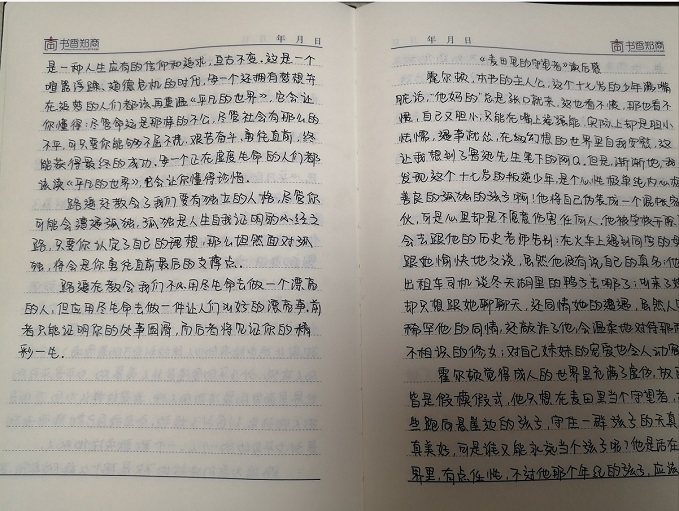 书香知商
年 月 日
是一种人生应有的信仰和追求,亘古不变,这是一个
喧嚣浮躁、道德危机的时代,每一个还拥有梦想并
在追梦的人们都该再重温《平凡的世界》,它会让
你懂得:尽管命运是那样的不公,尽管社会有那么的
不平,可只要你能够不屈不挠,艰苦奋斗,勇往直前,终
能获得最终的成功,每一个正在虚度生命的人们都
该读《平凡的世界》,它会让你懂得珍惜。
路遥还教会了我们要有独立的人格,尽管你
可能会遭遇孤独,孤独是人生自我证明的必经之
路,只要你认定了自己的理想,那么坦然面对孤
独,将会是你勇往直前最后的支撑点。
路遥在教会我们不必用尽生命去做一个漂亮
的人,但应用尽生命去做一件让人们叫好的漂亮事,前
者只能证明你的处事圆滑,而后者将见证你的精
彩一生.
年 月 日
书香知商
《麦田里的守望者》读后感
霍尔顿,本书的主人公,这个十七岁的少年满嘴
脏话,"他妈的"总是张口就来,这也看不惯,那也看不
惯,自己又胆小,只能在嘴上逞强能,实际上却是胆小
怯懦,遇事就怂,在级幻想的世界里自我安慰,这
让我想到了鲁迅先生笔下的阿Q。但是,渐渐地,我
发现,这个十七岁的叛逆少年,是个心性极单纯,内心极
善良的孤独的孩子啊!他将自己伪装成一个
伙,可是心里却是不愿意伤害任何人,他被学校开除
会去跟他的历史老师告别;在火车上遇到同学的母
跟她愉快地交谈,虽然他没有说自己的真名;他
出租车司机谈冬天湖里的鸭子去哪了;叫来了
却只想跟她聊聊天,还同情她的遭遇,虽然人
稀罕他的同情,还敲诈了他,会温柔地对待那
不相识的修女;对自己妹妹的宠爱也令人动
霍尔顿觉得成人的世界里充满了虚伪,放
皆是假模假式,他只想在麦田里当个守望者,
些跑向悬崖边的孩子,守在一群孩子的天真
真美好,可是谁又能永远当个孩子呢?他是活在
界里,有点任性,不过他那个年纪的孩子,应该